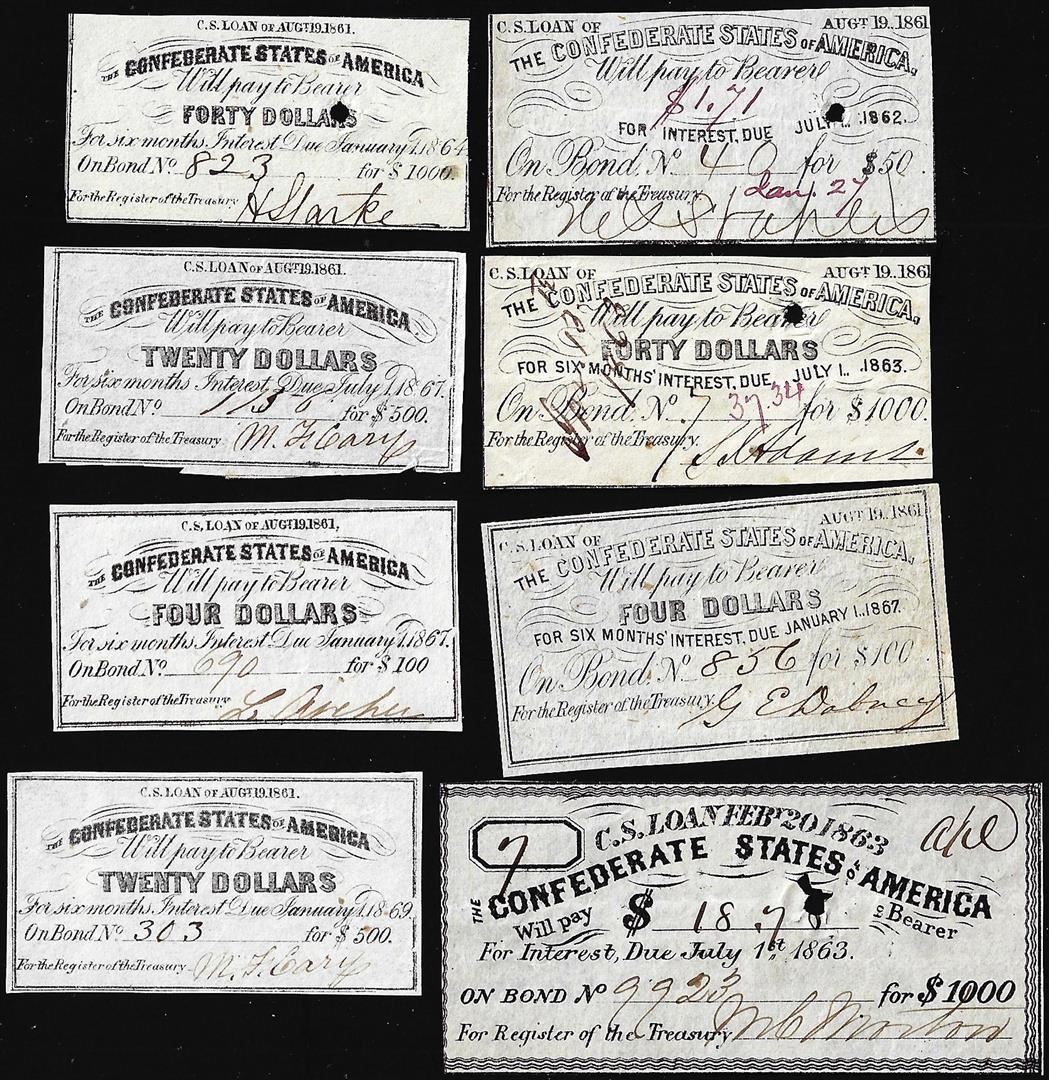 C.S. LOAN OF AUGT. 19. 1861.
THE CONFEDERATE STATES OF AMERICA
Will pay to Bearer
FORTY DOLLARS
For six months Interest Due January 1. 1864
On Bond No. 823 for $1000.
For the Register of the Treasury H Starke
C.S. LOAN OF AUGT 19.. 1861
THE CONFEDERATE STATES OF AMERICA,
Will pay to Bearer
$1.71
FOR INTEREST, DUE JULY 1.. .1862.
On Bond. No. 40 for $50
Jan. 27
For the Register of the Treasury.
C.S. LOAN OF AUGT. 19. 1861.
THE CONFEDERATE STATES OF AMERICA
Will pay to Bearer
TWENTY DOLLARS
For six months Interest Due July 1. 1867.
On Bond No. for $500.
For the Register of the Treasury M. F. Cary
C.S. LOAN OF AUGT 19.. 1861
THE CONFEDERATE STATES OF AMERICA,
Will pay to Bearer
FORTY DOLLARS
FOR SIX MONTHS' INTEREST, DUE, JULY 1.. .1863.
On Bond. No. 7 37.34 for $1000
For the Register of the Treasury. Adams
C.S. LOAN OF AUGT. 19. 1861,
THE CONFEDERATE STATES OF AMERICA
Will pay to Bearer
FOUR DOLLARS
For six months Interest Due January 1. 1867.
On Bond No. 690 for $100
For the Register of the Treasury
C.S. LOAN OF AUGT 19.. 1861
THE CONFEDERATE STATES OF AMERICA,
Will pay to Bearer
FOUR DOLLARS
FOR SIX MONTHS' INTEREST, DUE JANUARY 1.. 1867.
On Bond. No. 856 for $100
For the Register of the Treasury. G E Dabney
C.S. LOAN OF AUGT. 19. 1861.
THE CONFEDERATE STATES OF AMERICA
Will pay to Bearer
TWENTY DOLLARS
For six months Interest Due January 1. 1869.
On Bond No. 303 for $500.
For the Register of the Treasury M. F. Cary
7 C.S. LOAN FEBY 20 1863
THE CONFEDERATE STATES OF AMERICA
Will pay $ 18.7 to Bearer
For Interest, Due July 1st, 1863.
ON BOND No 9923 for $1000
For Register of the Treasury Morton